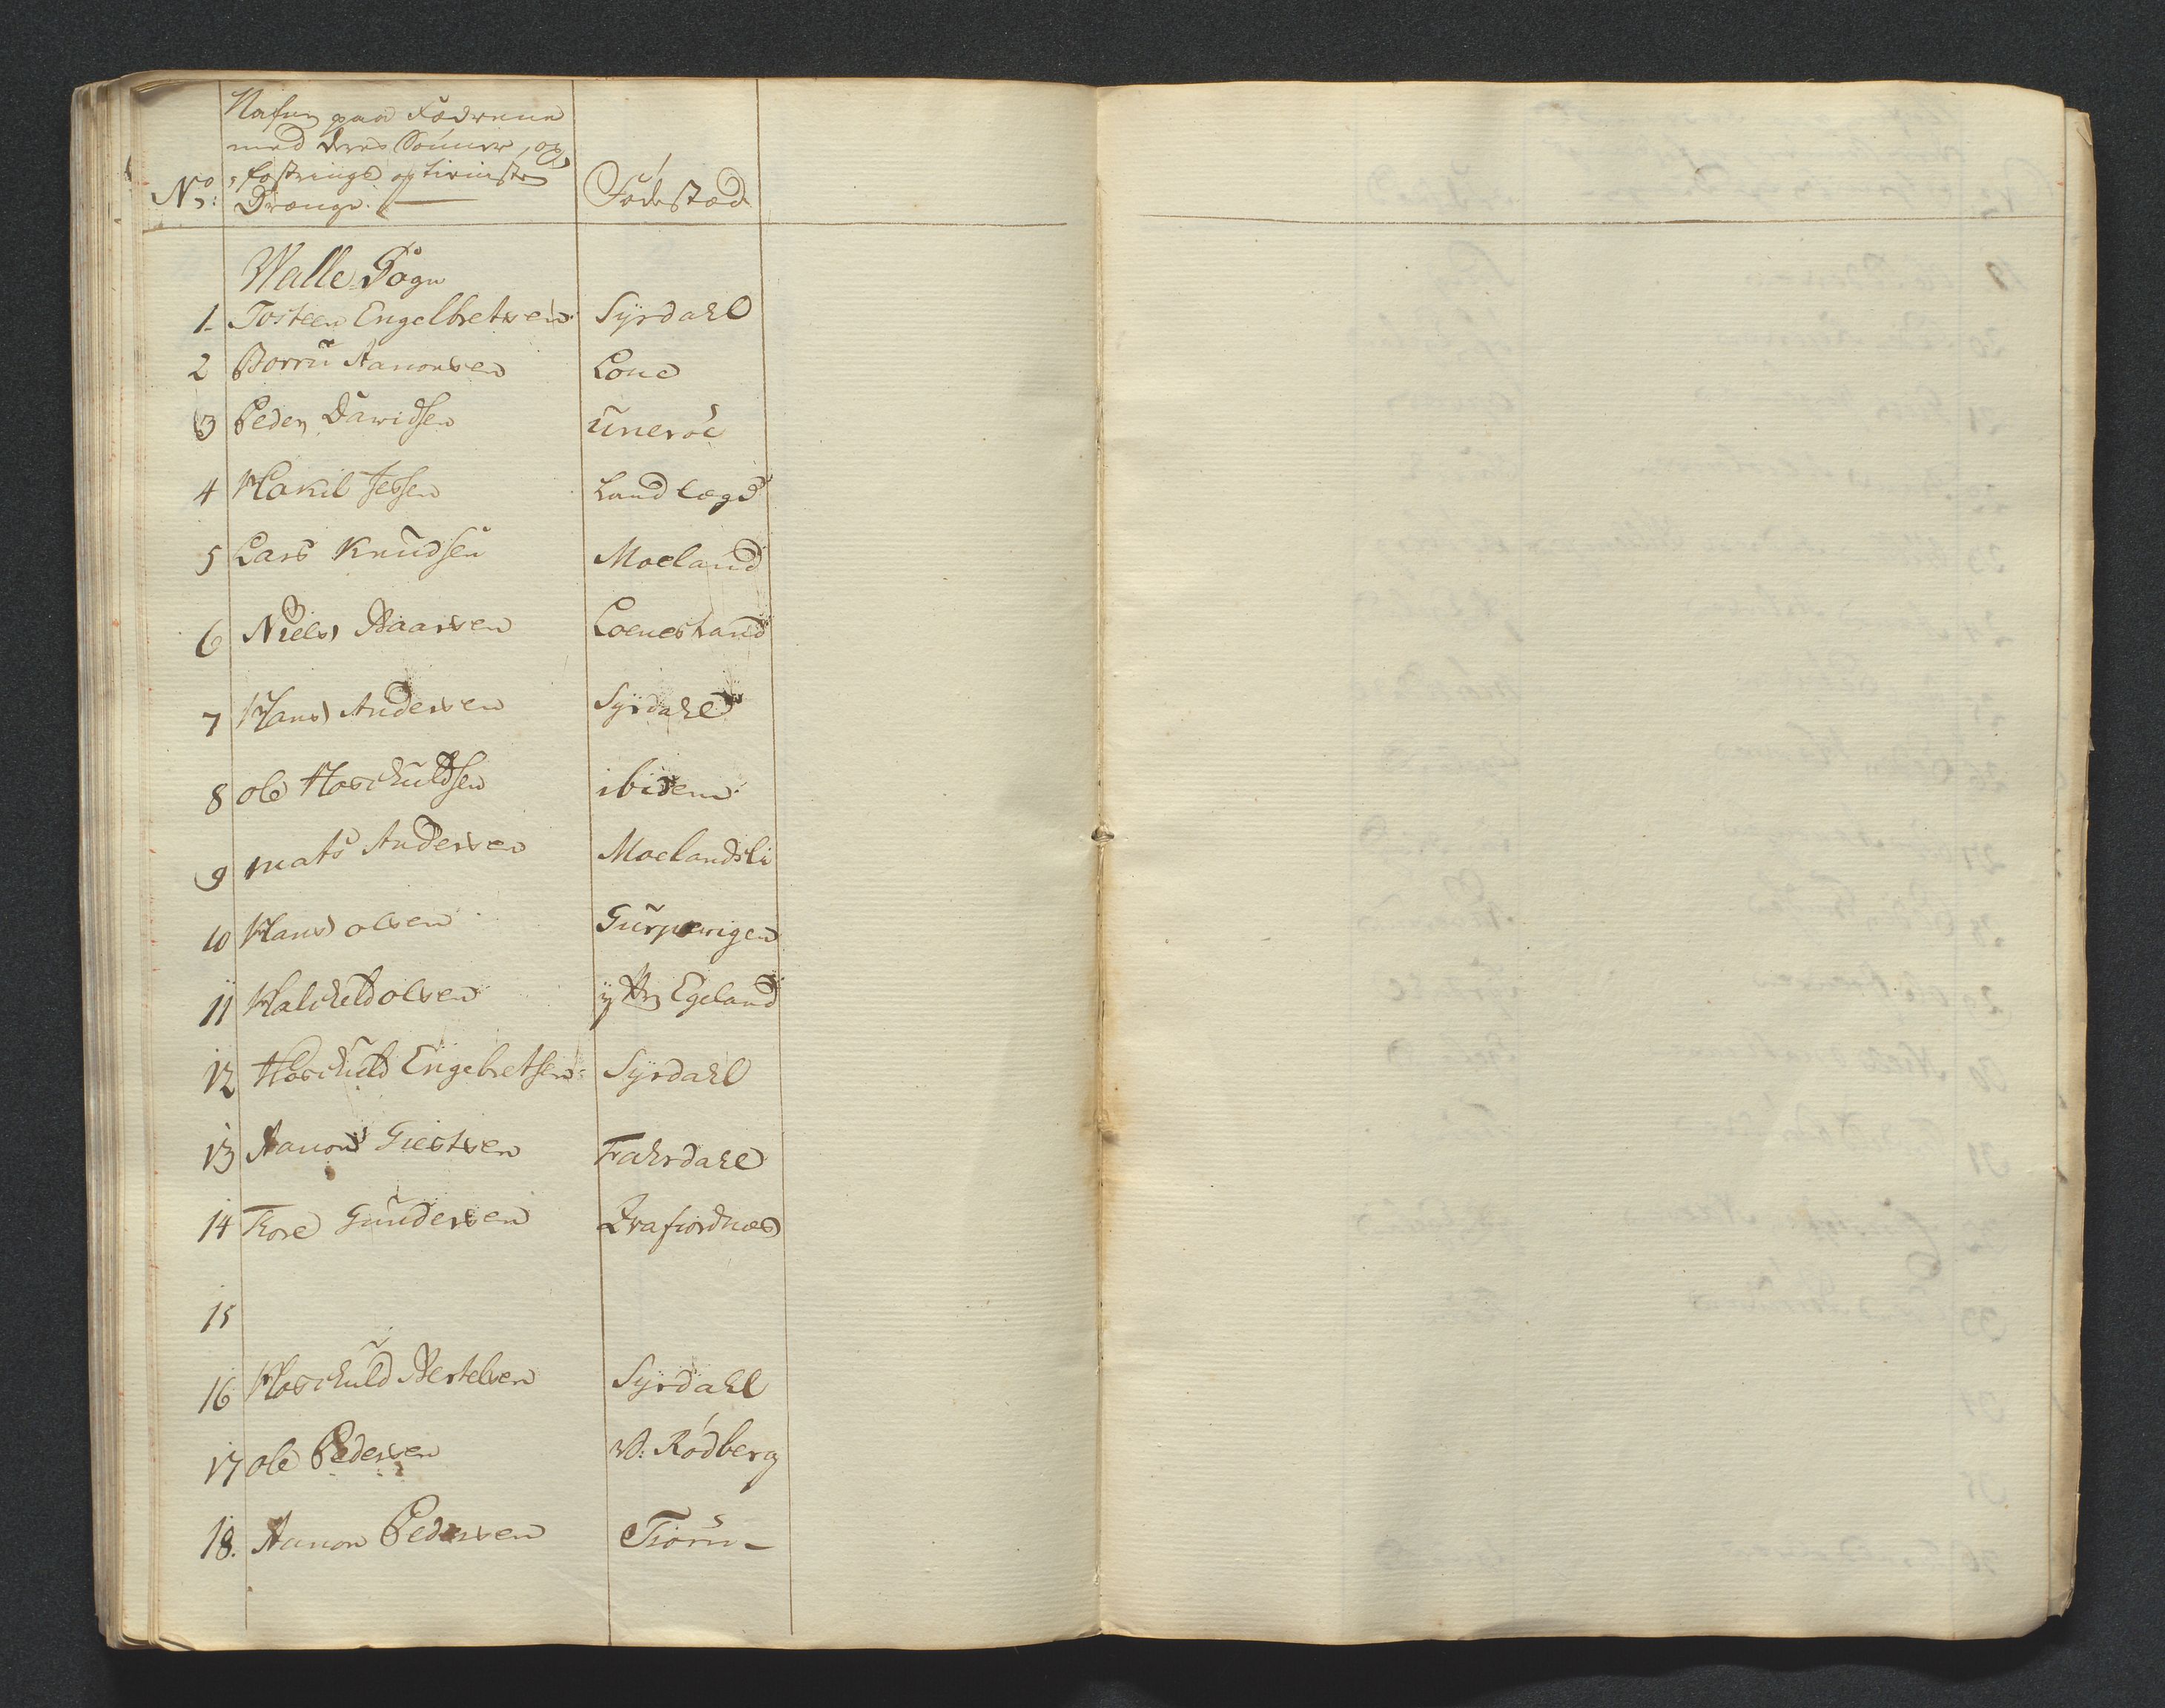 Nafn paa Fædrene
med deres Sønner, og
fostrings og tienist
No: Drænge.
Fødestæd
Walle Sogn
1. Tosteen Engelbretsen Syrdahl
2 Børrü Aanonsen Lone
3 Peder Davidsen Ünerøe
4 Hakil Jessen Landlægd
5 Lars Knudsen Moeland
6 Niels Aaarsen Loenestrand
7 Hans Andersen Syrdahl
8 ole Hoschuldsen ibidem
9 mats Andersen Moelandsli
10 Hans olsen
11 Halchild olsen yttr Egeland
12 Hoschuld Engebretsen Syrdahl
13 Aanon Giertsen Fahrdahl
14 Tore Gundersen
15
16 Hoschuld Bertelsen Syrdahl
17 ole Pedersen W: Rødberg
18. Aanon Pedersen Tiörn